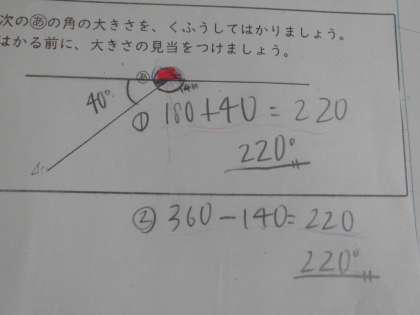 次のあの角の大きさを、くふうしてはかりましょう。
はかる前に、大きさの見当をつけましょう。
あ
40°
① 180+40=220
220°
② 360-140=220
220°